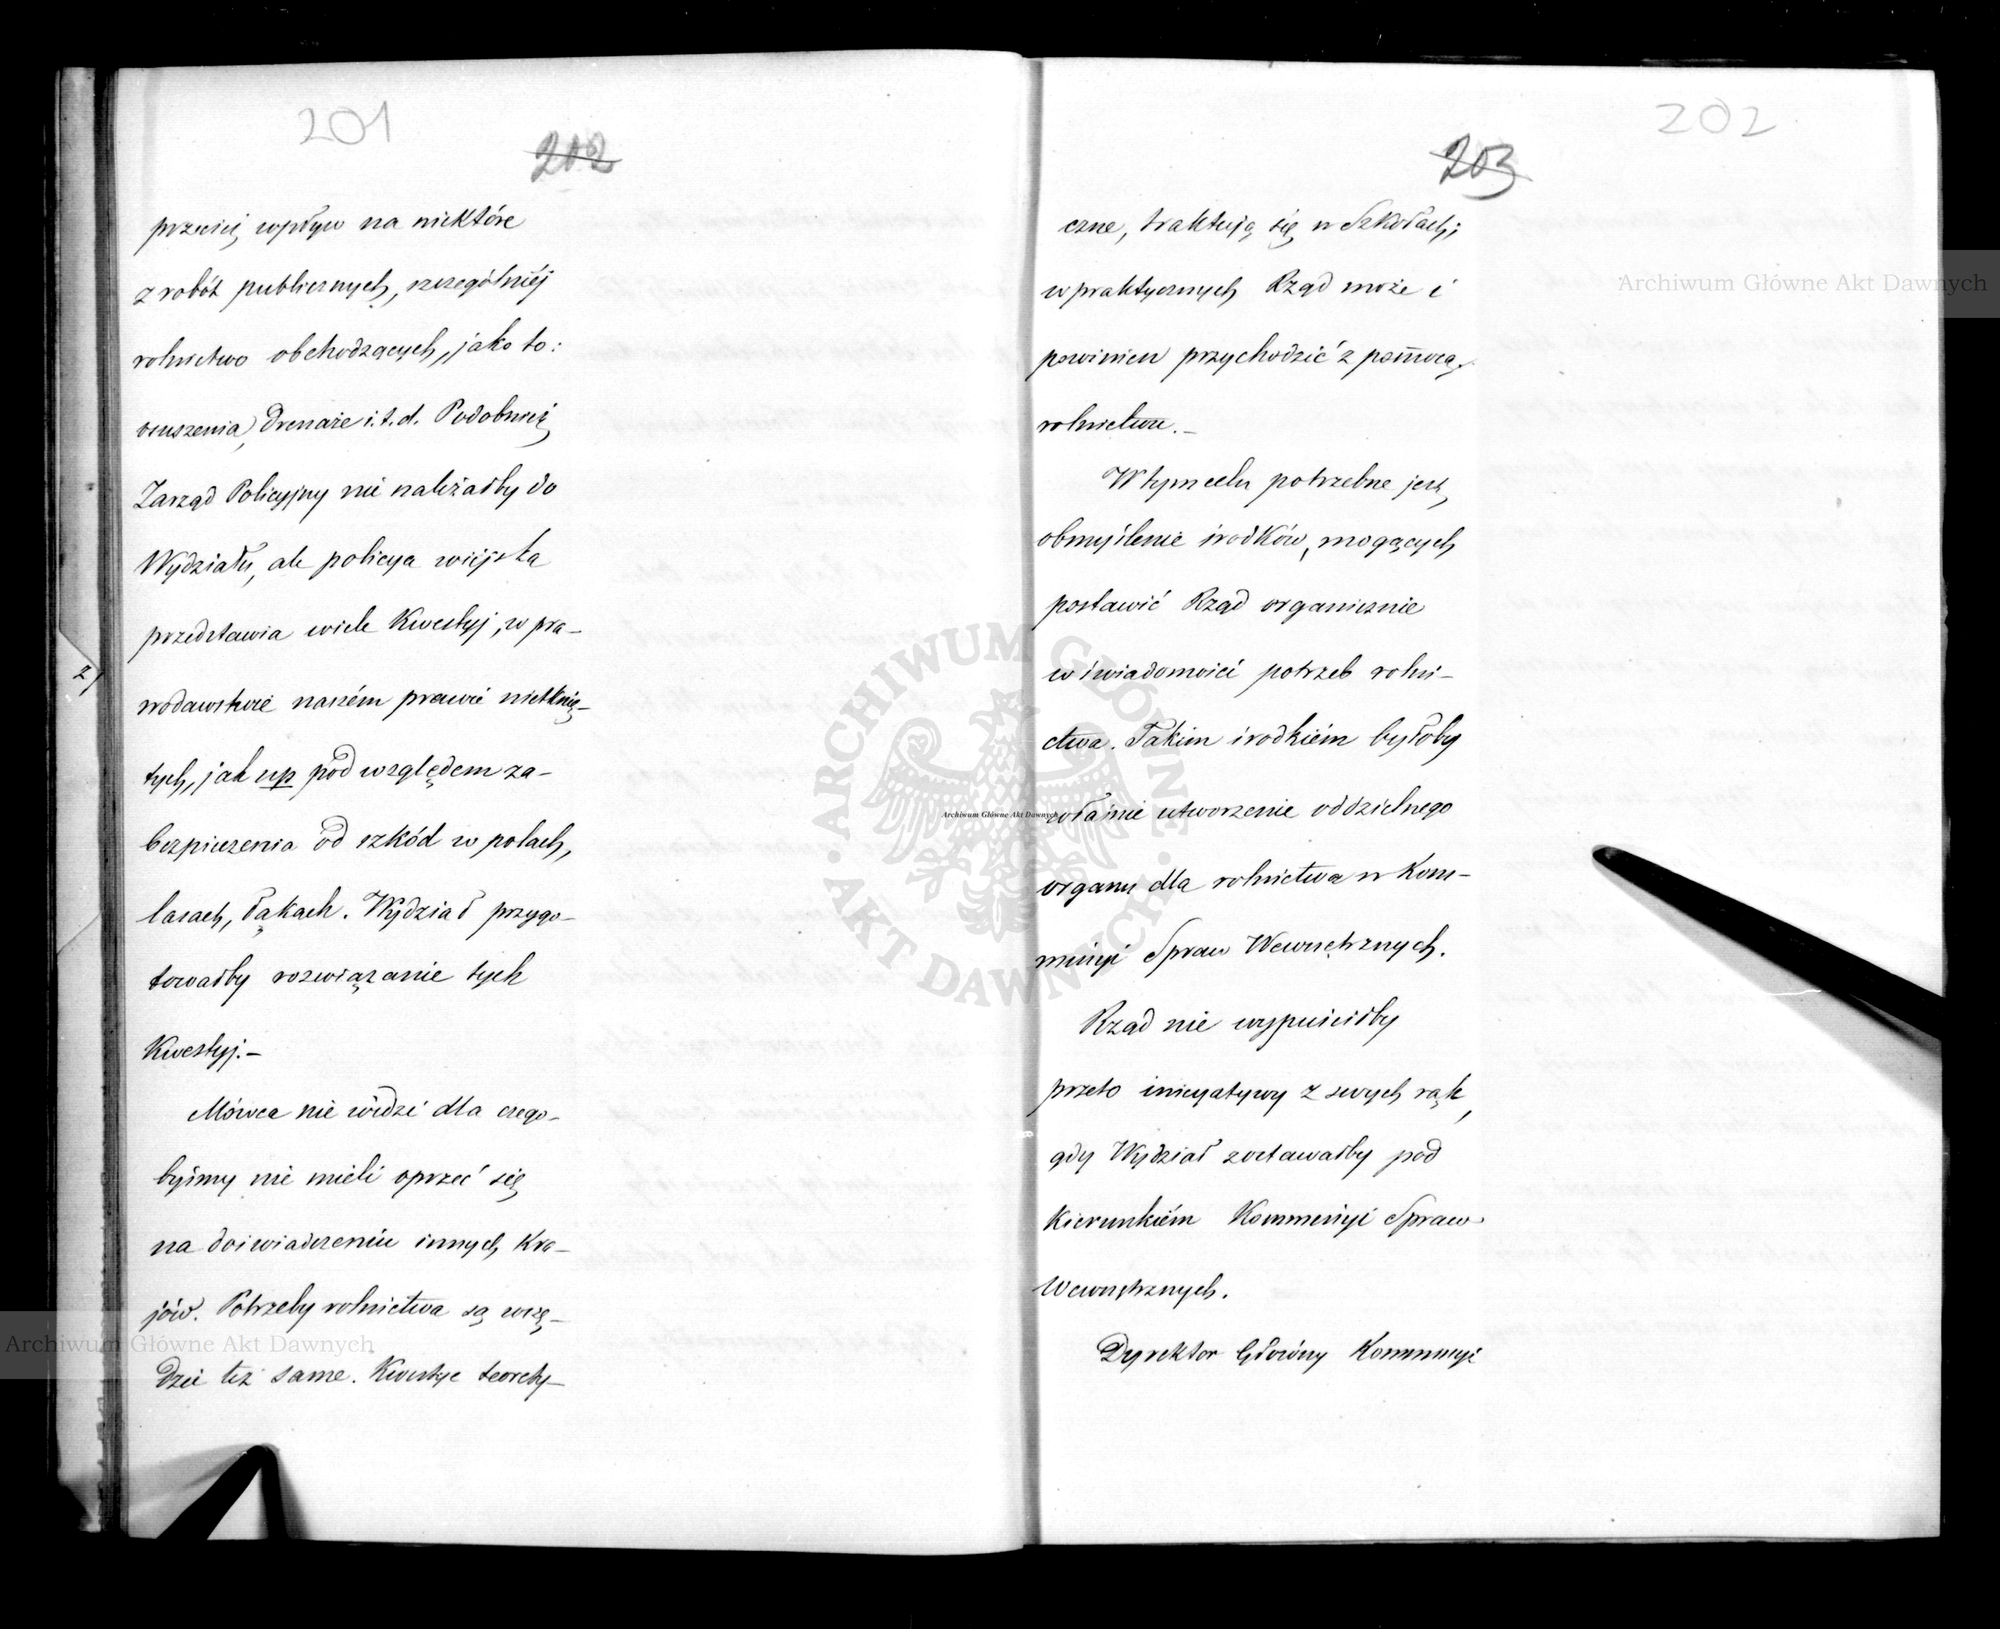 201
202
przecież wpływ na niektóre
z robót publicznych, szczególniéj
rolnictwo obchodzących, jako to:
osuszenia, drenaże i.t.d. Podobnież
Zarząd Policyjny nie należałby do
Wydziału, ale policya wiejska
przedstawia wiele Kwestyj, w pra-
wodawstwie naszém prawie nietknię-
tych, jak np pod względem za-
bezpieczenia od szkód w polach,
lasach, łąkach. Wydział przygo-
towałby rozwiązanie tych
Kwestyj.-
Mówca nie widzi dla czego-
byśmy nie mieli oprzeć się
na doświadczeniu innych Kra-
jów. Potrzeby rolnictwa są wszę-
dzie też same. Kwestye teorety-
202
203
czne, traktują się w Szkołach;
w praktycznych Rząd może i
powinien przychodzić z pomocą
rolnictwu.-
W tym celu potrzebne jest,
obmyślenie środków, mogących
postawić Rząd organicznie
w świadomości potrzeb rolni-
ctwa. Takim środkiém byłoby
właśnie utworzenie oddzielnego
organu dla rolnictwa w Kom-
missyi Spraw Wewnętrznych.
Rząd nie wypuściłby
przeto inicyatywy z swych rąk,
gdy Wydział zostawałby pod
Kierunkiém Kommissyi Spraw
Wewnętrznych.
Dyrektor Główny Kommissyi
2/
Archiwum Główne Akt Dawnych
Archiwum Główne Akt Dawnych
Archiwum Główne Akt Dawnych
ARCHIWUM GŁÓWNE
AKT DAWNYCH